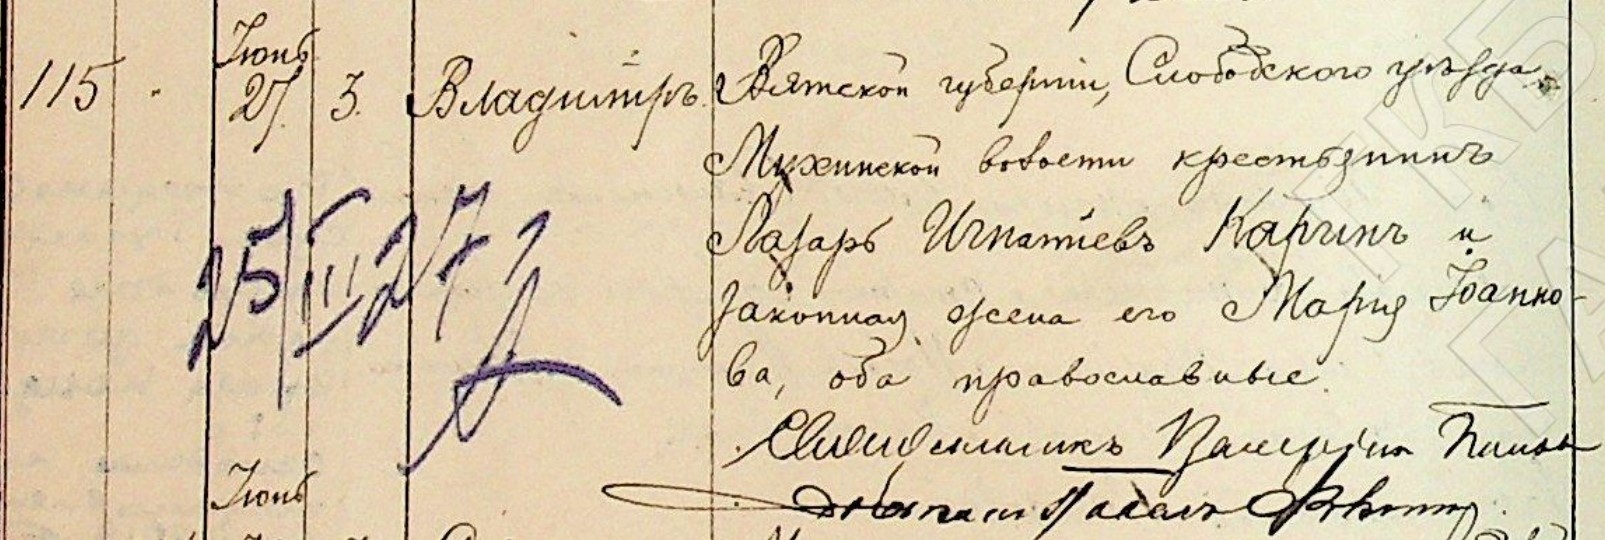 Іюнь
115 27. 3. Владиміръ. Вятской губерніи, Слободского уѣзда
Мухинской волости крестьянинъ
Лазарь Игнатіевъ Каринъ и
законная жена его Марія Іоанно-
ва, оба православные.
25/III 27 г
Священникъ Валеріан Попов
Іюнь
Павелъ